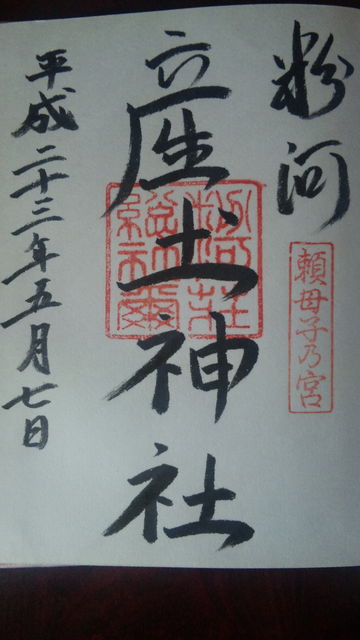 粉河
頼母子乃宮
産土神社
平成二十三年五月七日